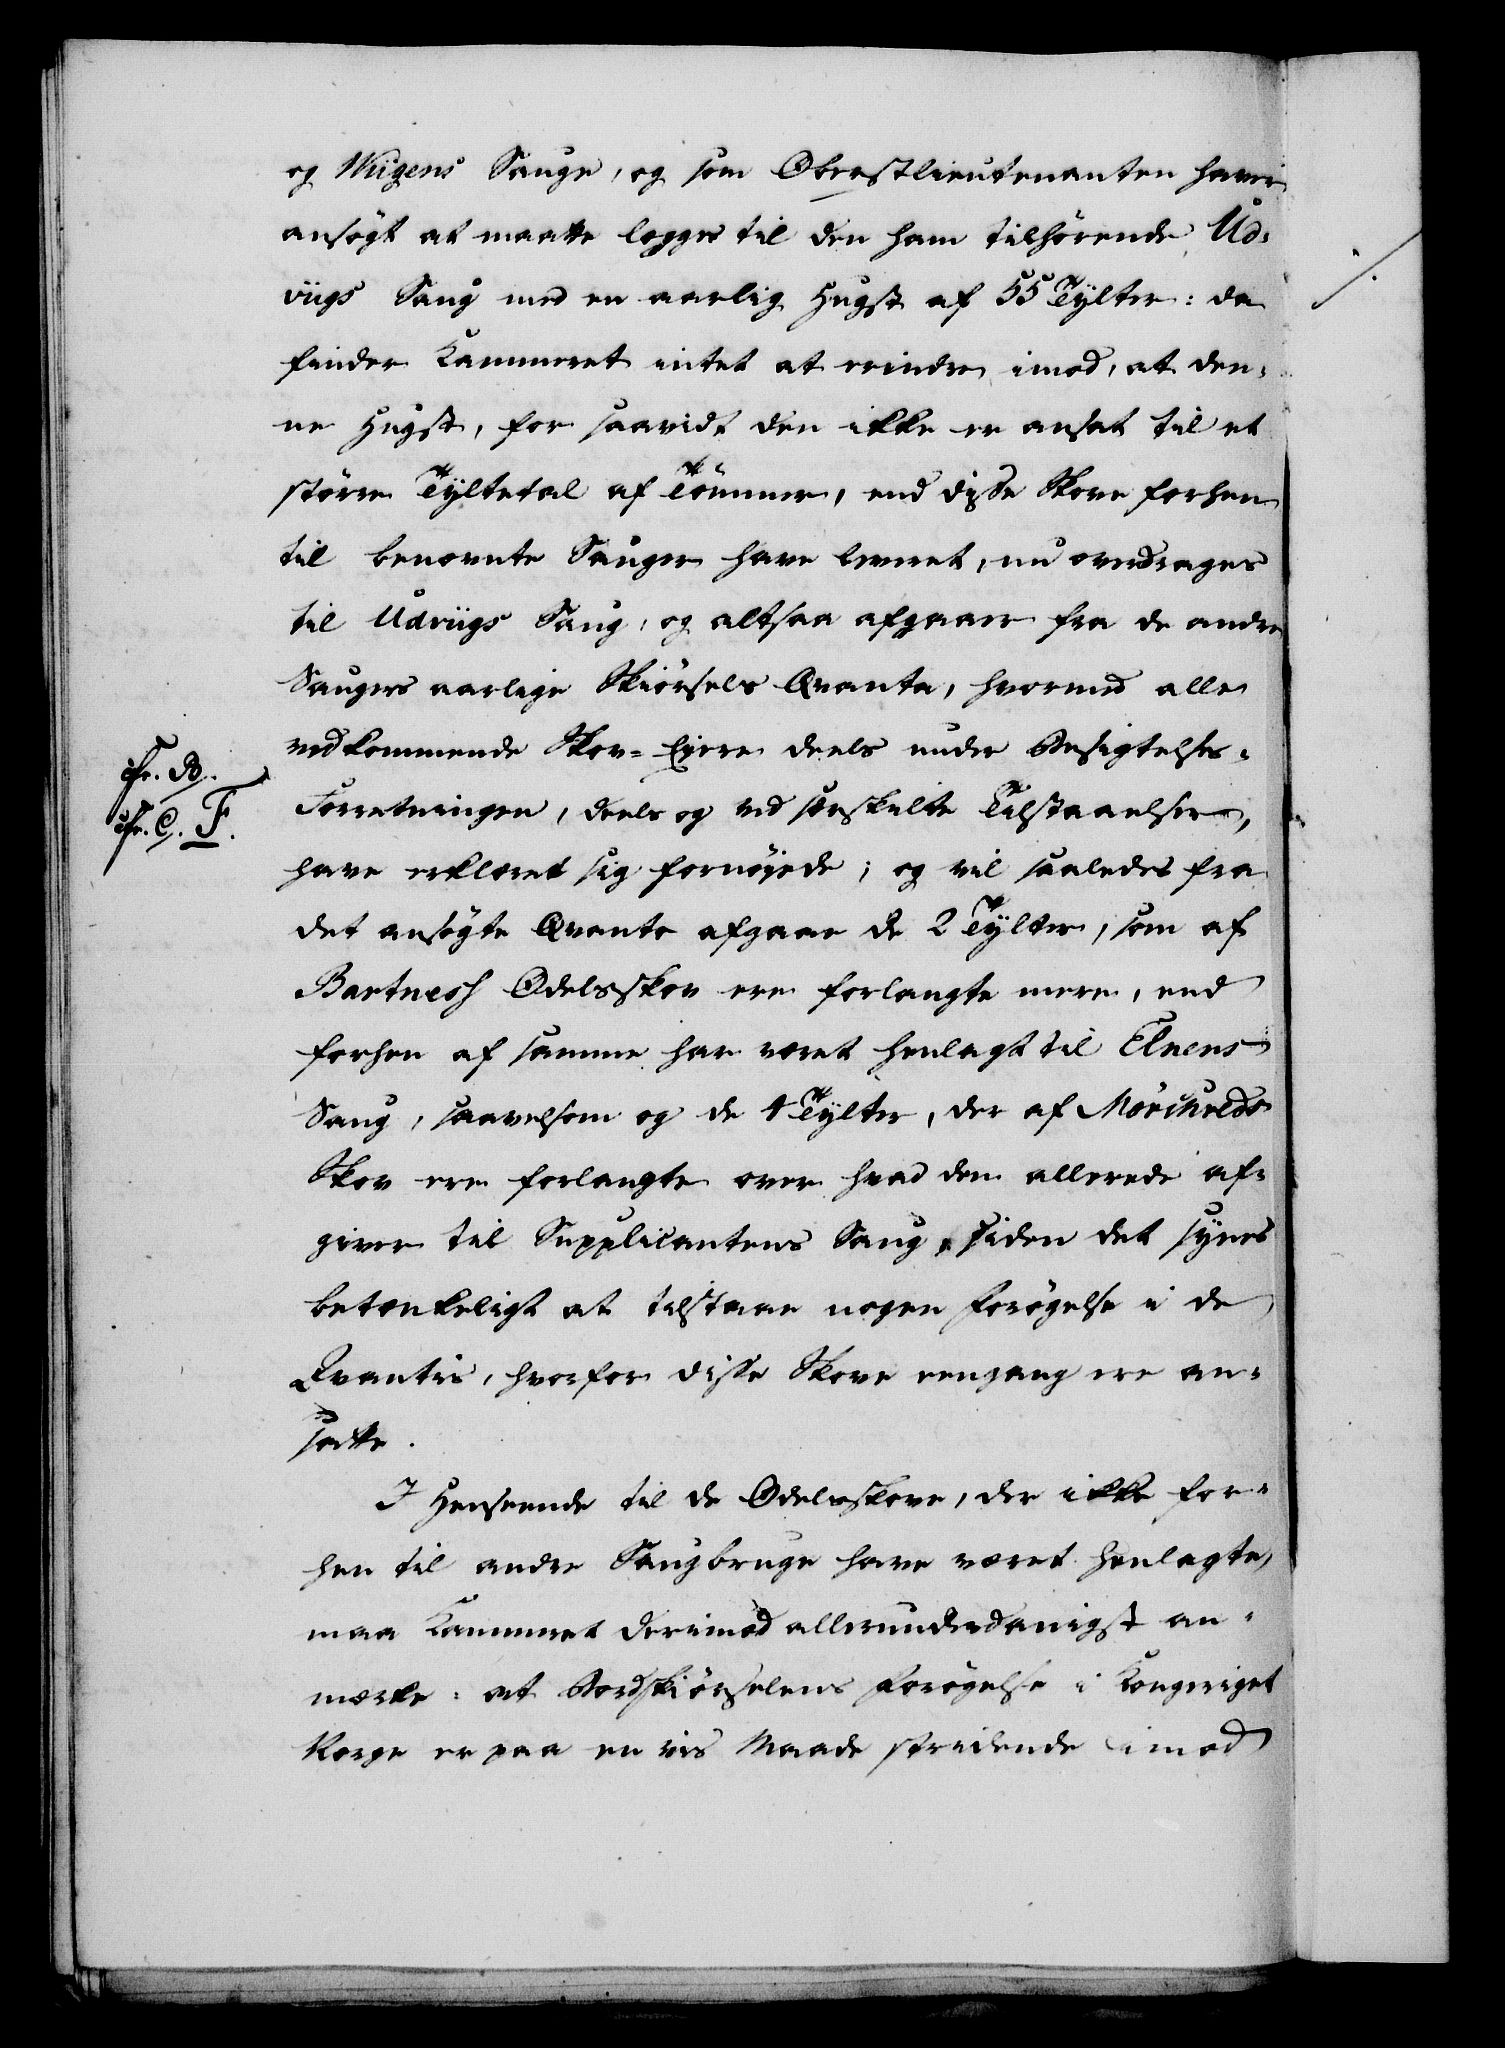 og Wiigens Sauge, og som Oberstlieutenanten haver
ansögt at maatte legges til den ham tilhörende Ud-
viigs Saug med en aarlig Hugst af 55 Tylter: da
finder Kammeret intet at erindre imod, at den-
ne Hugst, for saavidt den ikke er ansat til et
större Tyltetal af Tömmer, end disse Skove forhen
til benævnte Sauger have leveret, nu overdrages
til Udviigs Saug, og altsaa afgaaer fra de andre
Saugers aarlige Skiörsels Qvanta, hvormed alle
vedkommende Skov-Eyere deels under Besigtelses-
Forretningen, deels og ved særskilte Tilstaaelser,
cfr. B.
cfr. C. F.
have erklæret sig fornöyede; og vil saaledes fra
det ansögte Qvanto afgaae de 2 Tylter, som af
Bartness Odelsskov ere forlangte mere, end
forhen af samme har været henlagt til Elnens
Saug, saavelsom og de 4 Tylter, der af Mörchveds
Skov ere forlangte over hvad den allerede af-
giver til Supplicantens Saug, siden det synes
betænkeligt at tilstaae nogen Forögelse i de
Qvantis, hvorfor disse Skove eengang ere an-
satte.
I Henseende til de Odelsskove, der ikke for-
hen til andre Saugbruge have været henlagte,
maa Kammeret derimod allerunderdanigst an-
mærke: at Bordskiörselens Forögelse i Kongeriget
Norge er paa en vis Maade stridende imod